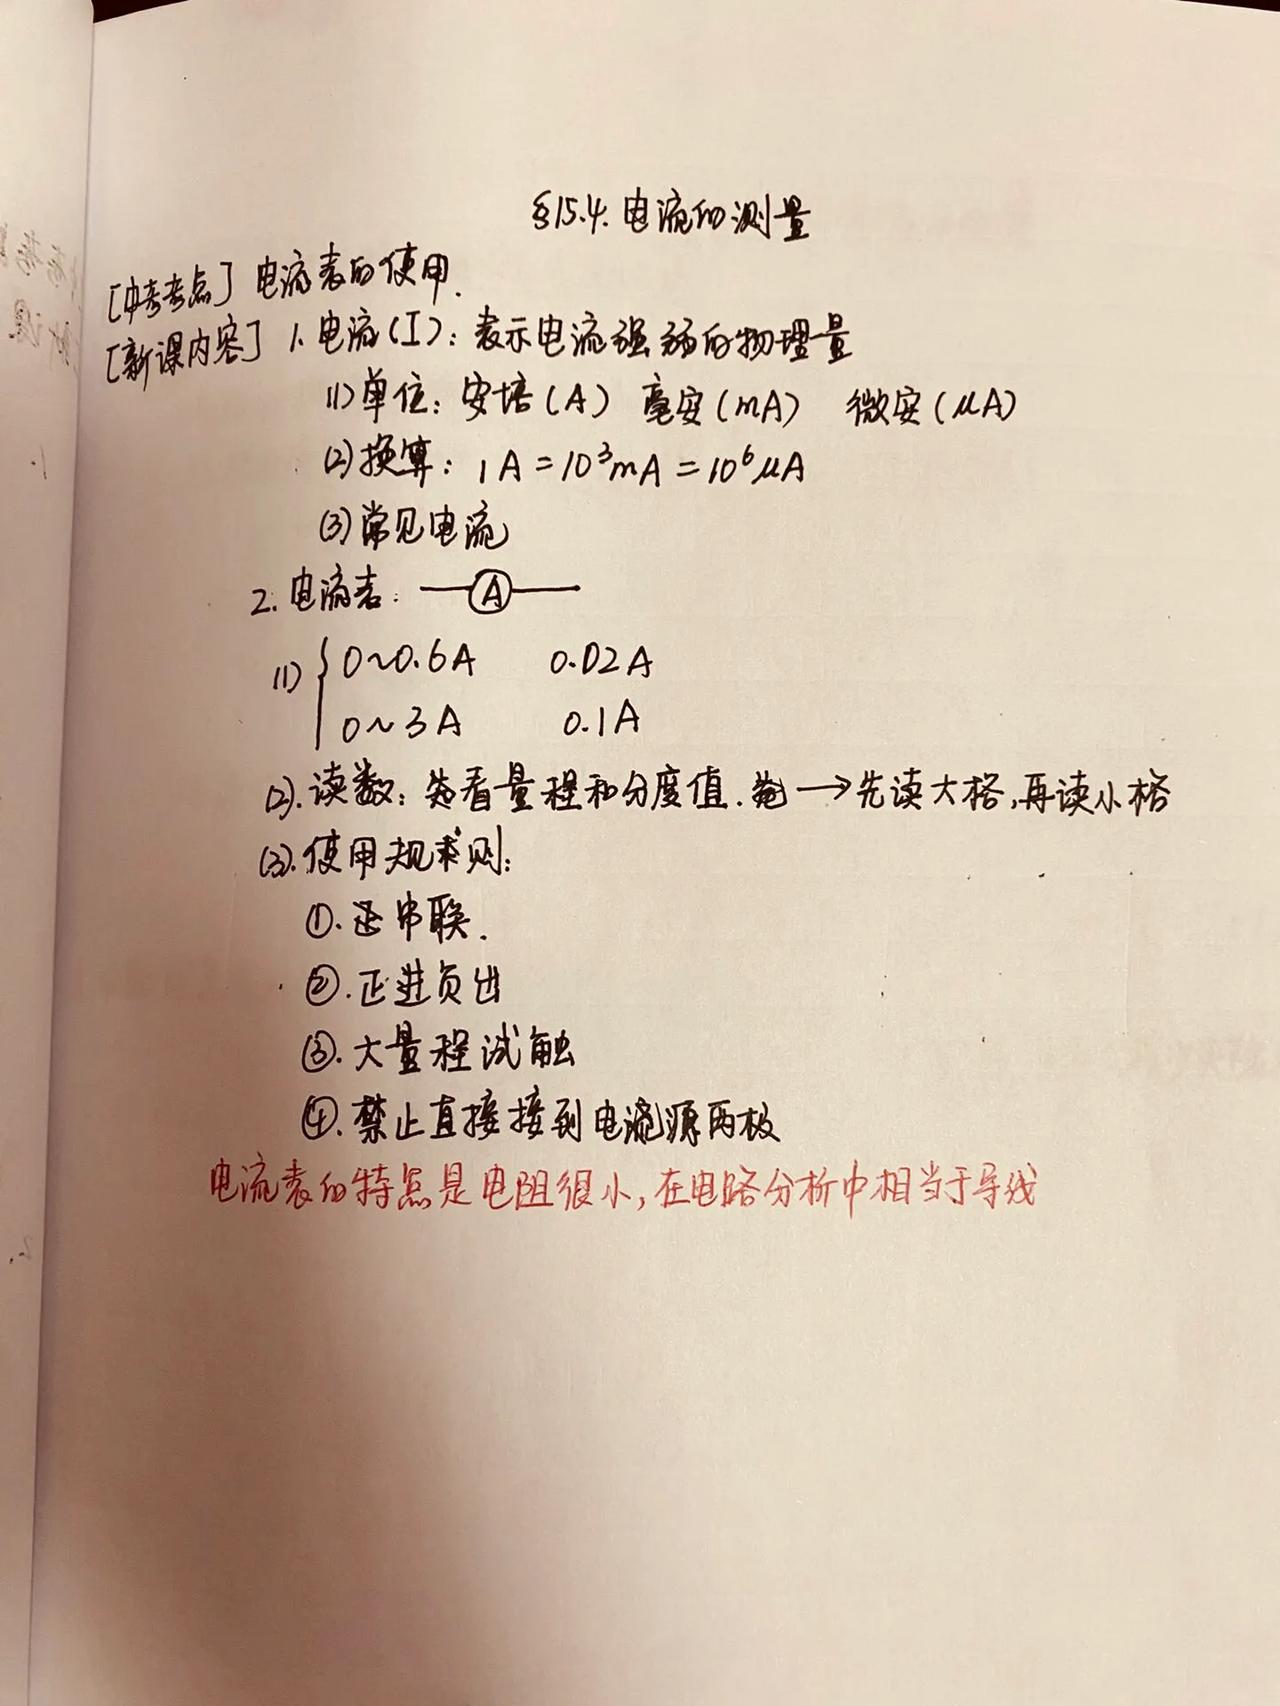 §15.4. 电流的测量
[中考考点] 电流表的使用.
[新课内容] 1. 电流(I): 表示电流强弱的物理量
(1) 单位: 安培(A) 毫安(mA) 微安(μA)
(2) 换算: 1A=10³mA=10⁶μA
(3) 常见电流
2. 电流表: A
(1) { 0~0.6A 0.02A
0~3A 0.1A
(2). 读数: 先看量程和分度值. → 先读大格, 再读小格
(3). 使用规则:
①. 串联.
②. 正进负出
③. 大量程试触
④. 禁止直接接到电源两极
电流表的特点是电阻很小, 在电路分析中相当于导线